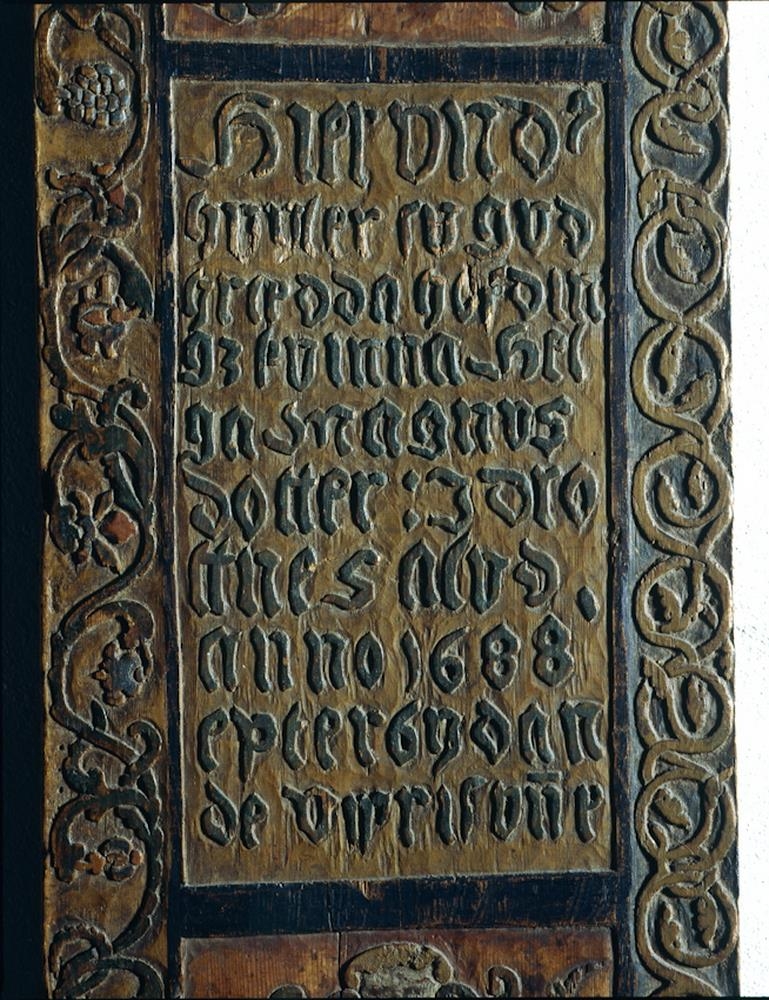 Hier vnd᛫
hvyler sv gvd
hrædda høfdin
gz kvinna Hel
ga Magnvs
dotter : I dro
ttne Salvd .
anno 1688
epter bydan
de vpprisvn̄e